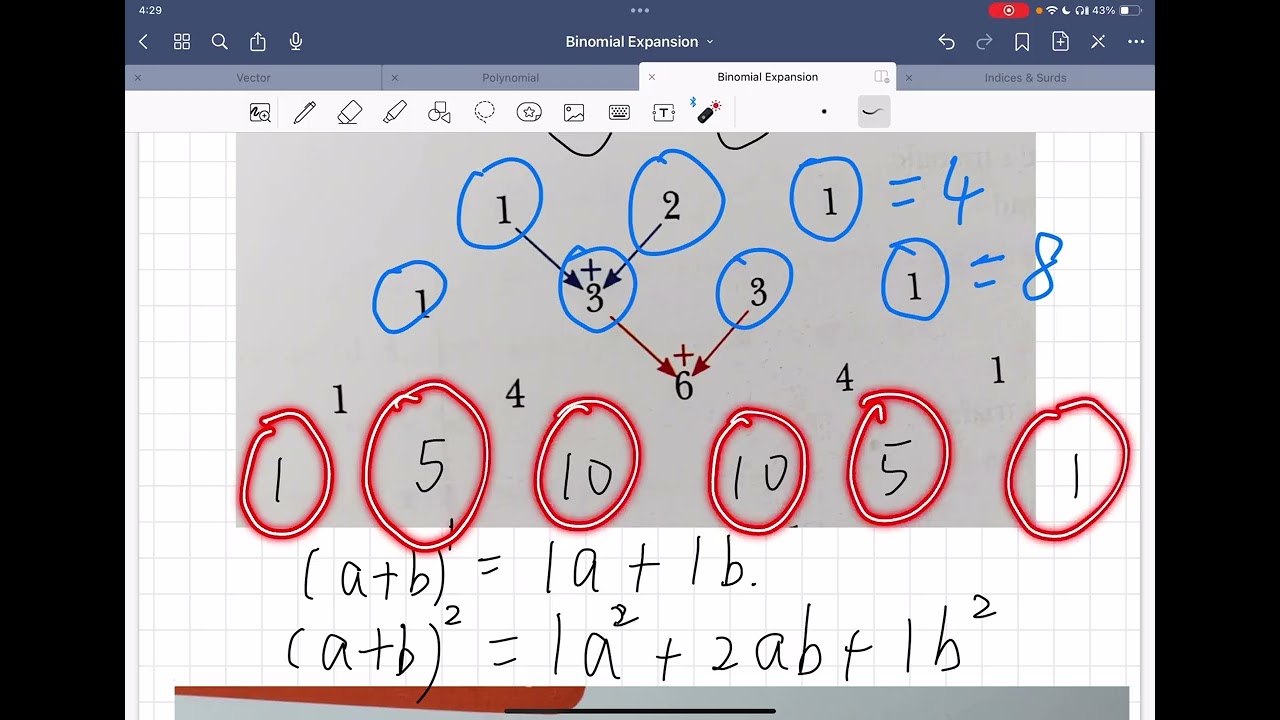 4:29
43%
Binomial Expansion
Vector
Polynomial
Binomial Expansion
Indices & Surds
1 2 1 = 4
+
1 3 3 1 = 8
+
1 4 6 4 1
1 5 10 10 5 1
(a+b)¹ = 1a + 1b.
(a+b)² = 1a² + 2ab + 1b²